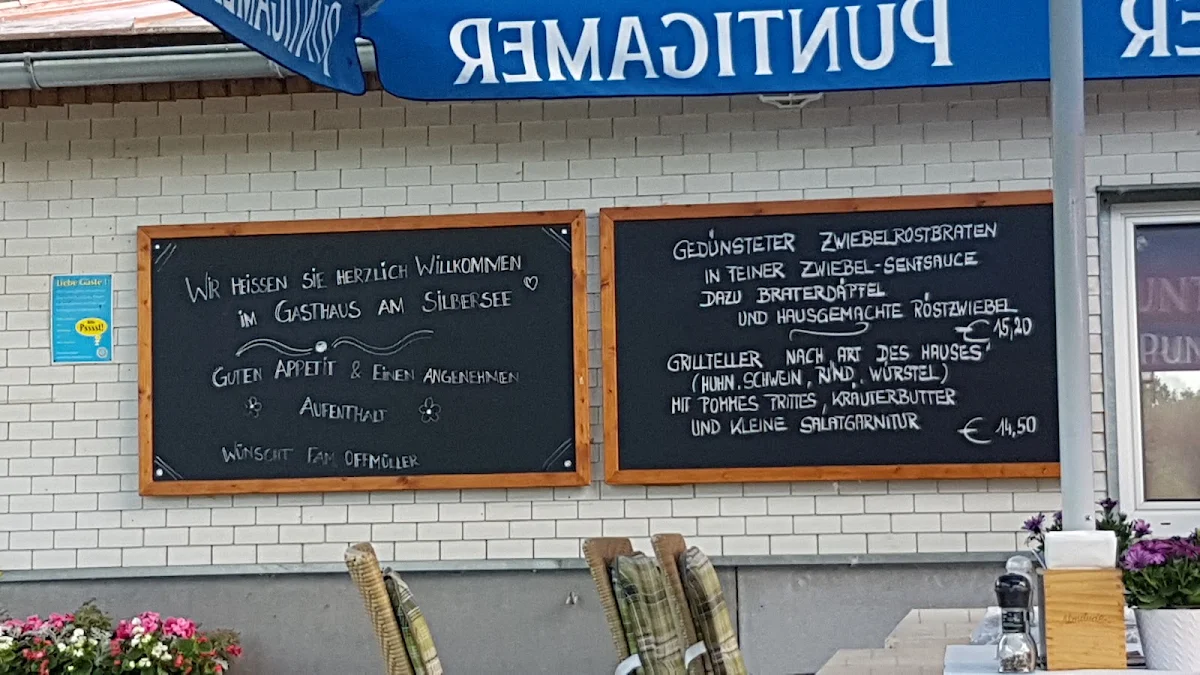 PUNTIGAMER
PUNTIGAMER
Liebe Gäste!
Bitte
Psssst!
WIR HEISSEN SIE HERZLICH WILLKOMMEN
IM GASTHAUS AM SILBERSEE
GUTEN APPETIT & EINEN ANGENEHMEN
AUFENTHALT
WÜNSCHT FAM. OFFMÜLLER
GEDÜNSTETER ZWIEBELROSTBRATEN
IN FEINER ZWIEBEL-SENFSAUCE
DAZU BRATERDÄPFEL
UND HAUSGEMACHTE RÖSTZWIEBEL
€ 15,20
GRILLTELLER "NACH ART DES HAUSES"
(HUHN, SCHWEIN, RIND, WÜRSTEL)
MIT POMMES FRITTES, KRÄUTERBUTTER
UND KLEINE SALATGARNITUR
€ 14,50